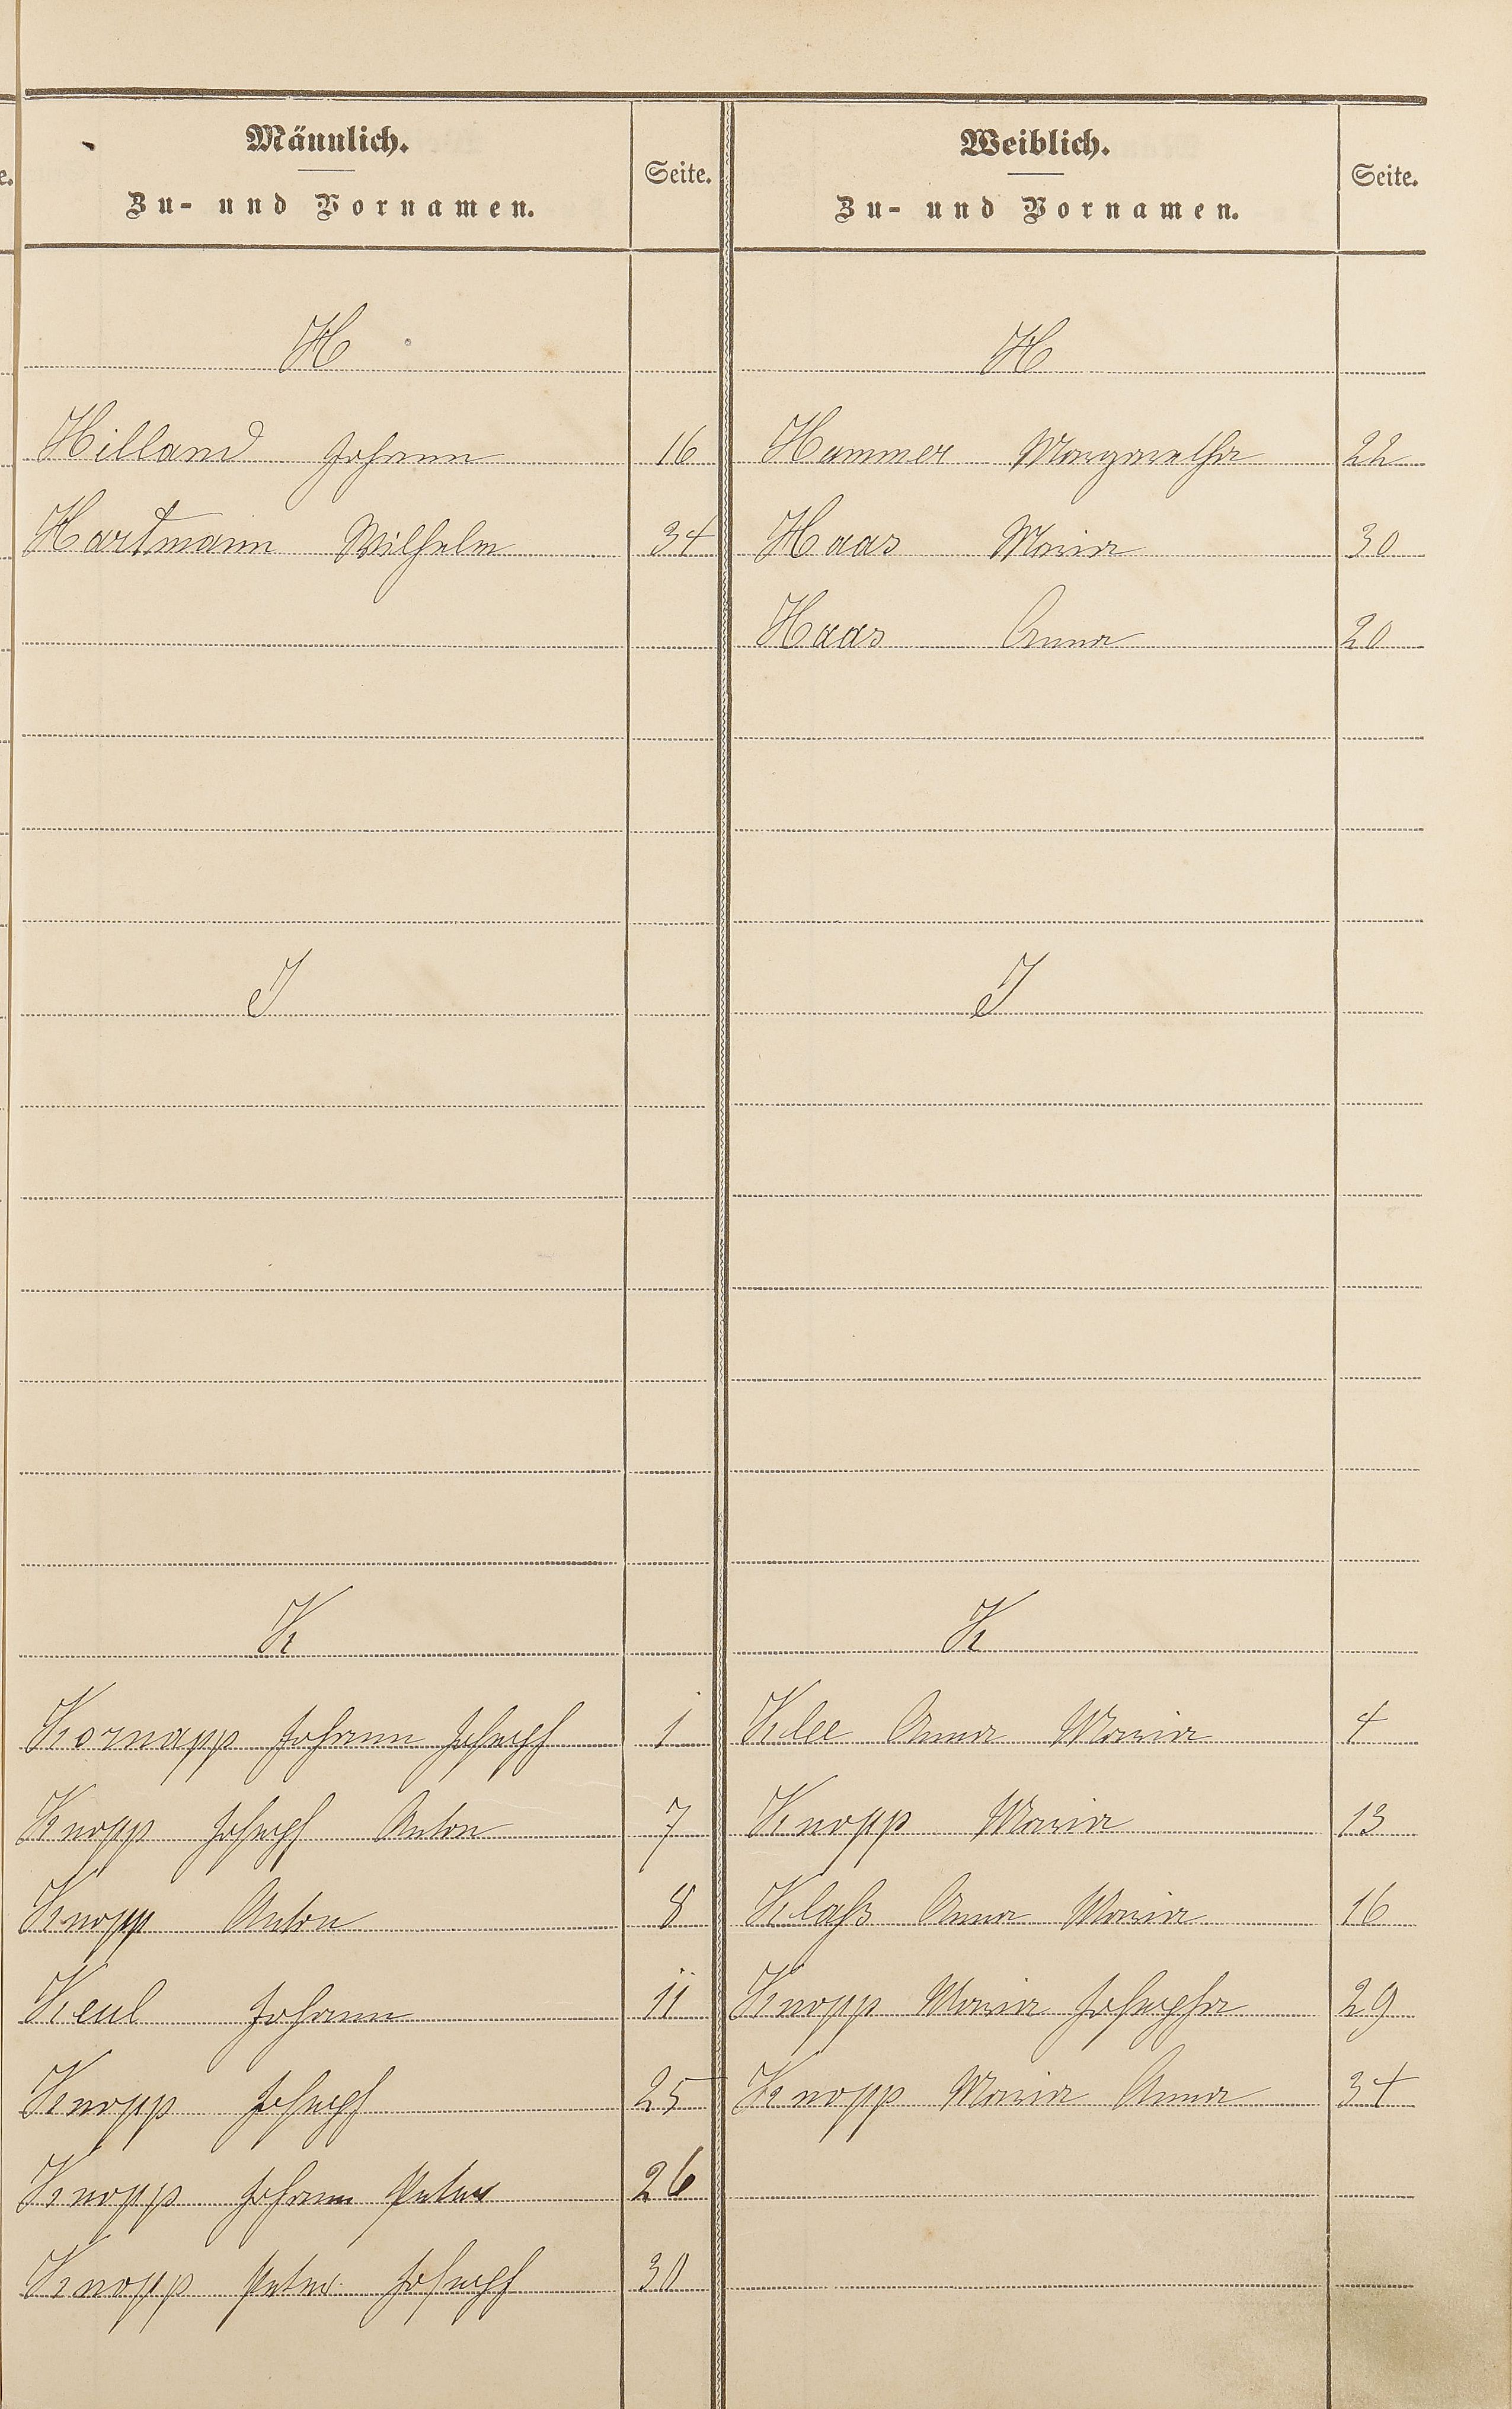 Männlich.
Zu- und Vornamen.
Seite.
H
Hilland Johann 16
Hartmann Wilhelm 34
J
K
Kornapp Johann Joseph 1
Knopp Joseph Anton 7
Knopp Anton 8
Keul Johann 11
Knopp Joseph 25
Knopp Johann Peter 26
Knopp Peter Joseph 30
Weiblich.
Zu- und Vornamen.
Seite.
H
Hammer Margaretha 22
Haas Maria 30
Haas Anna 20
J
K
Klee Anna Maria 4
Knopp Maria 13
Klaß Anna Maria 16
Knopp Maria Josepha 29
Knopp Maria Anna 34